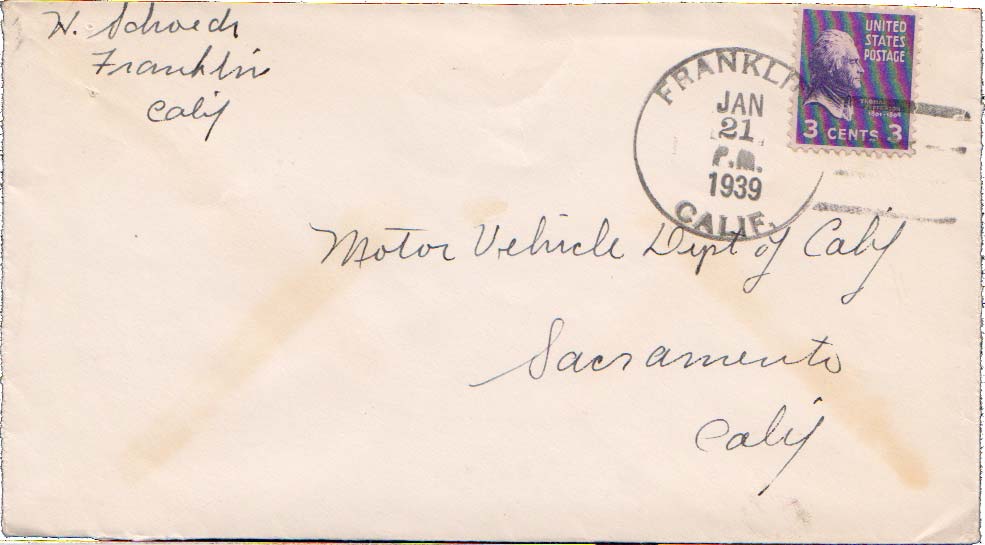 H. Schroedr
Franklin
Calif
FRANKLIN
JAN
21
P.M.
1939
CALIF.
UNITED
STATES
POSTAGE
THOMAS
JEFFERSON
1801-1809
3 CENTS 3
Motor Vehicle Dept of Calif
Sacramento
Calif